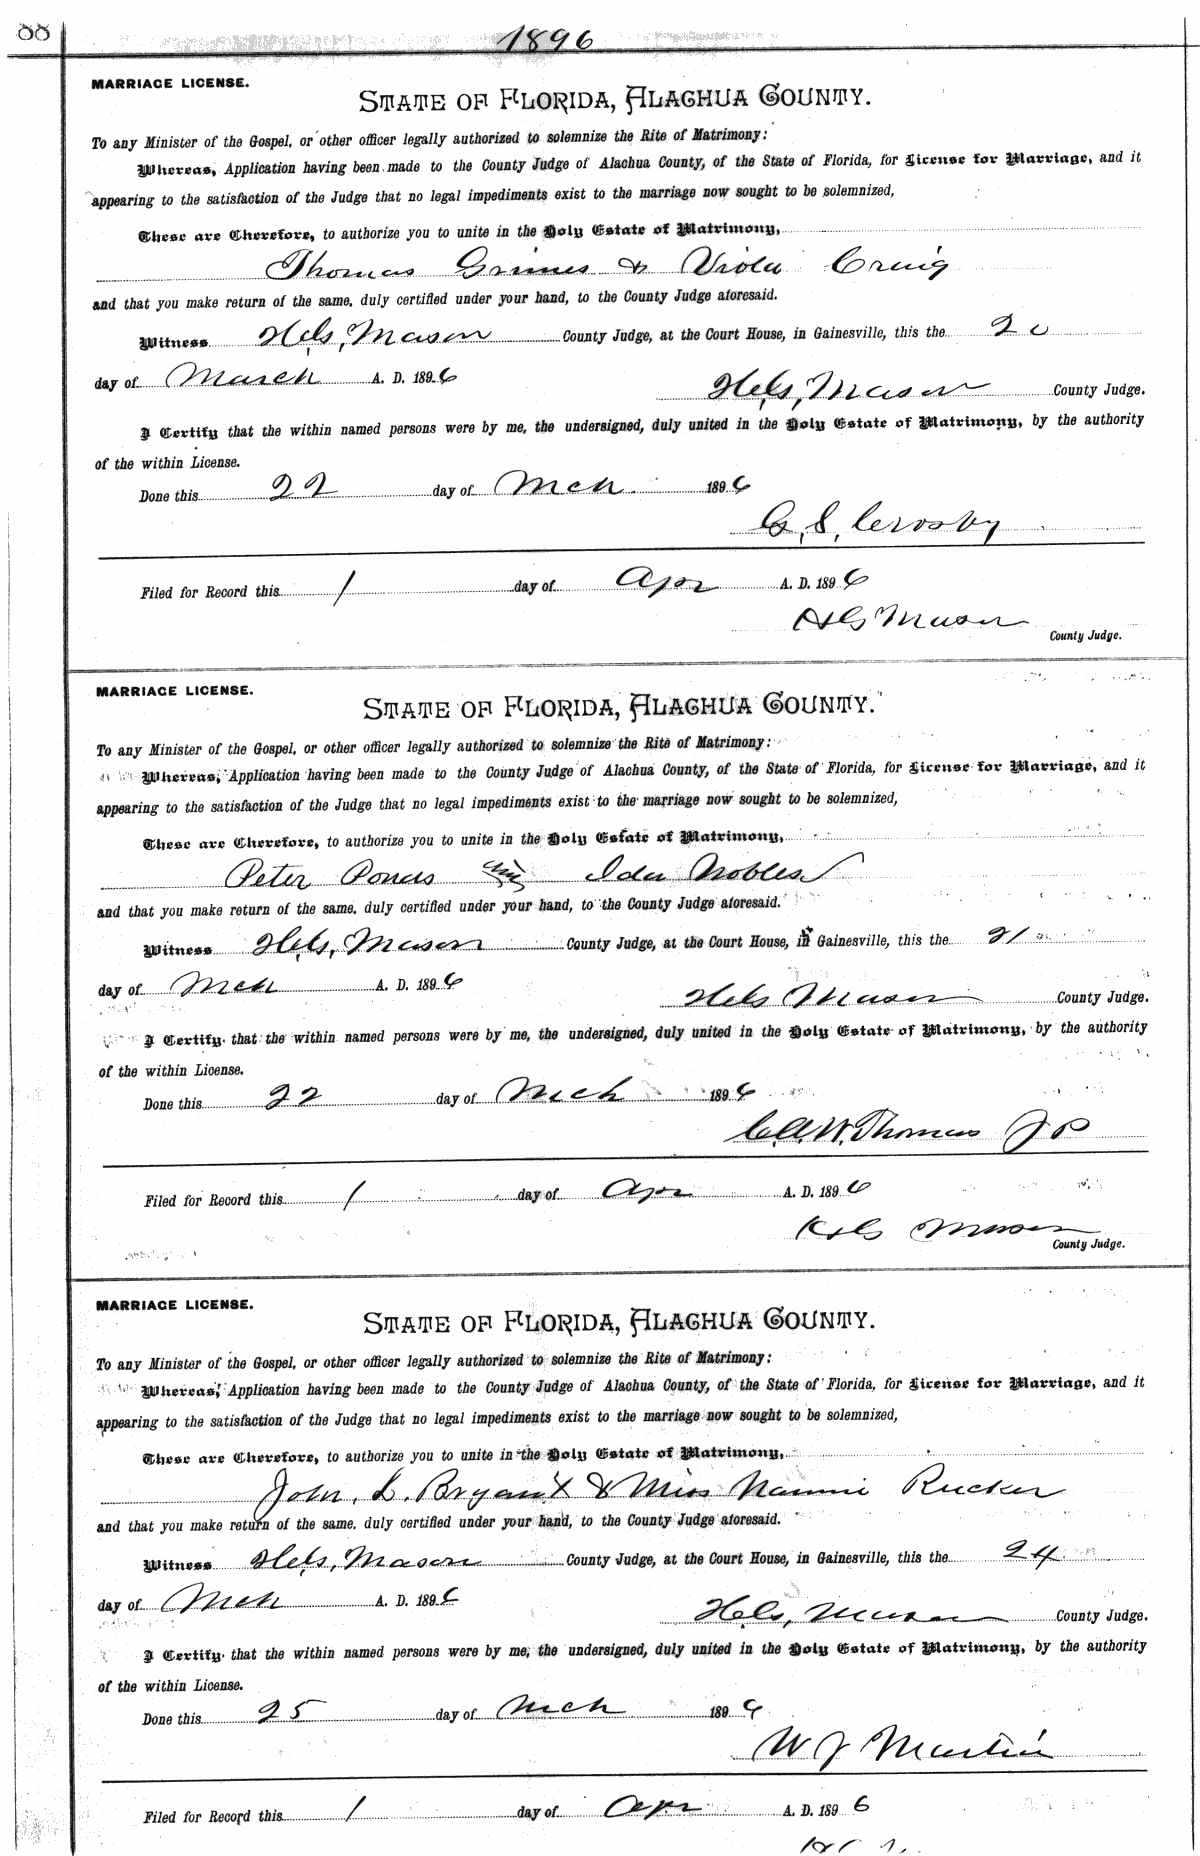 88
1896
MARRIAGE LICENSE.
STATE OF FLORIDA, ALACHUA COUNTY.
To any Minister of the Gospel, or other officer legally authorized to solemnize the Rite of Matrimony:
Whereas, Application having been made to the County Judge of Alachua County, of the State of Florida, for License for Marriage, and it
appearing to the satisfaction of the Judge that no legal impediments exist to the marriage now sought to be solemnized,
These are Therefore, to authorize you to unite in the Holy Estate of Matrimony,
Thomas Grimes & Viola Craig
and that you make return of the same, duly certified under your hand, to the County Judge aforesaid.
Witness Mason County Judge, at the Court House, in Gainesville, this the 20
day of March A. D. 1896
Mason County Judge.
I Certify that the within named persons were by me, the undersigned, duly united in the Holy Estate of Matrimony, by the authority
of the within License.
Done this 22 day of Mch 1896
S. Crosby
Filed for Record this 1 day of Apr A. D. 1896
Mason
County Judge.
MARRIAGE LICENSE.
STATE OF FLORIDA, ALACHUA COUNTY.
To any Minister of the Gospel, or other officer legally authorized to solemnize the Rite of Matrimony:
Whereas, Application having been made to the County Judge of Alachua County, of the State of Florida, for License for Marriage, and it
appearing to the satisfaction of the Judge that no legal impediments exist to the marriage now sought to be solemnized,
These are Therefore, to authorize you to unite in the Holy Estate of Matrimony,
Peter Ida Nobles
and that you make return of the same, duly certified under your hand, to the County Judge aforesaid.
Witness Mason County Judge, at the Court House, in Gainesville, this the 21
day of Mch A. D. 1896
Mason County Judge.
I Certify that the within named persons were by me, the undersigned, duly united in the Holy Estate of Matrimony, by the authority
of the within License.
Done this 22 day of Mch 1896
W. Thomas J P
Filed for Record this 1 day of Apr A. D. 1896
Mason
County Judge.
MARRIAGE LICENSE.
STATE OF FLORIDA, ALACHUA COUNTY.
To any Minister of the Gospel, or other officer legally authorized to solemnize the Rite of Matrimony:
Whereas, Application having been made to the County Judge of Alachua County, of the State of Florida, for License for Marriage, and it
appearing to the satisfaction of the Judge that no legal impediments exist to the marriage now sought to be solemnized,
These are Therefore, to authorize you to unite in the Holy Estate of Matrimony,
John. L. Bryant & Miss Nannie Rucker
and that you make return of the same, duly certified under your hand, to the County Judge aforesaid.
Witness Mason County Judge, at the Court House, in Gainesville, this the 24
day of Mch A. D. 1896
Mason County Judge.
I Certify that the within named persons were by me, the undersigned, duly united in the Holy Estate of Matrimony, by the authority
of the within License.
Done this 25 day of Mch 1896
W J Martin
Filed for Record this 1 day of Apr A. D. 1896